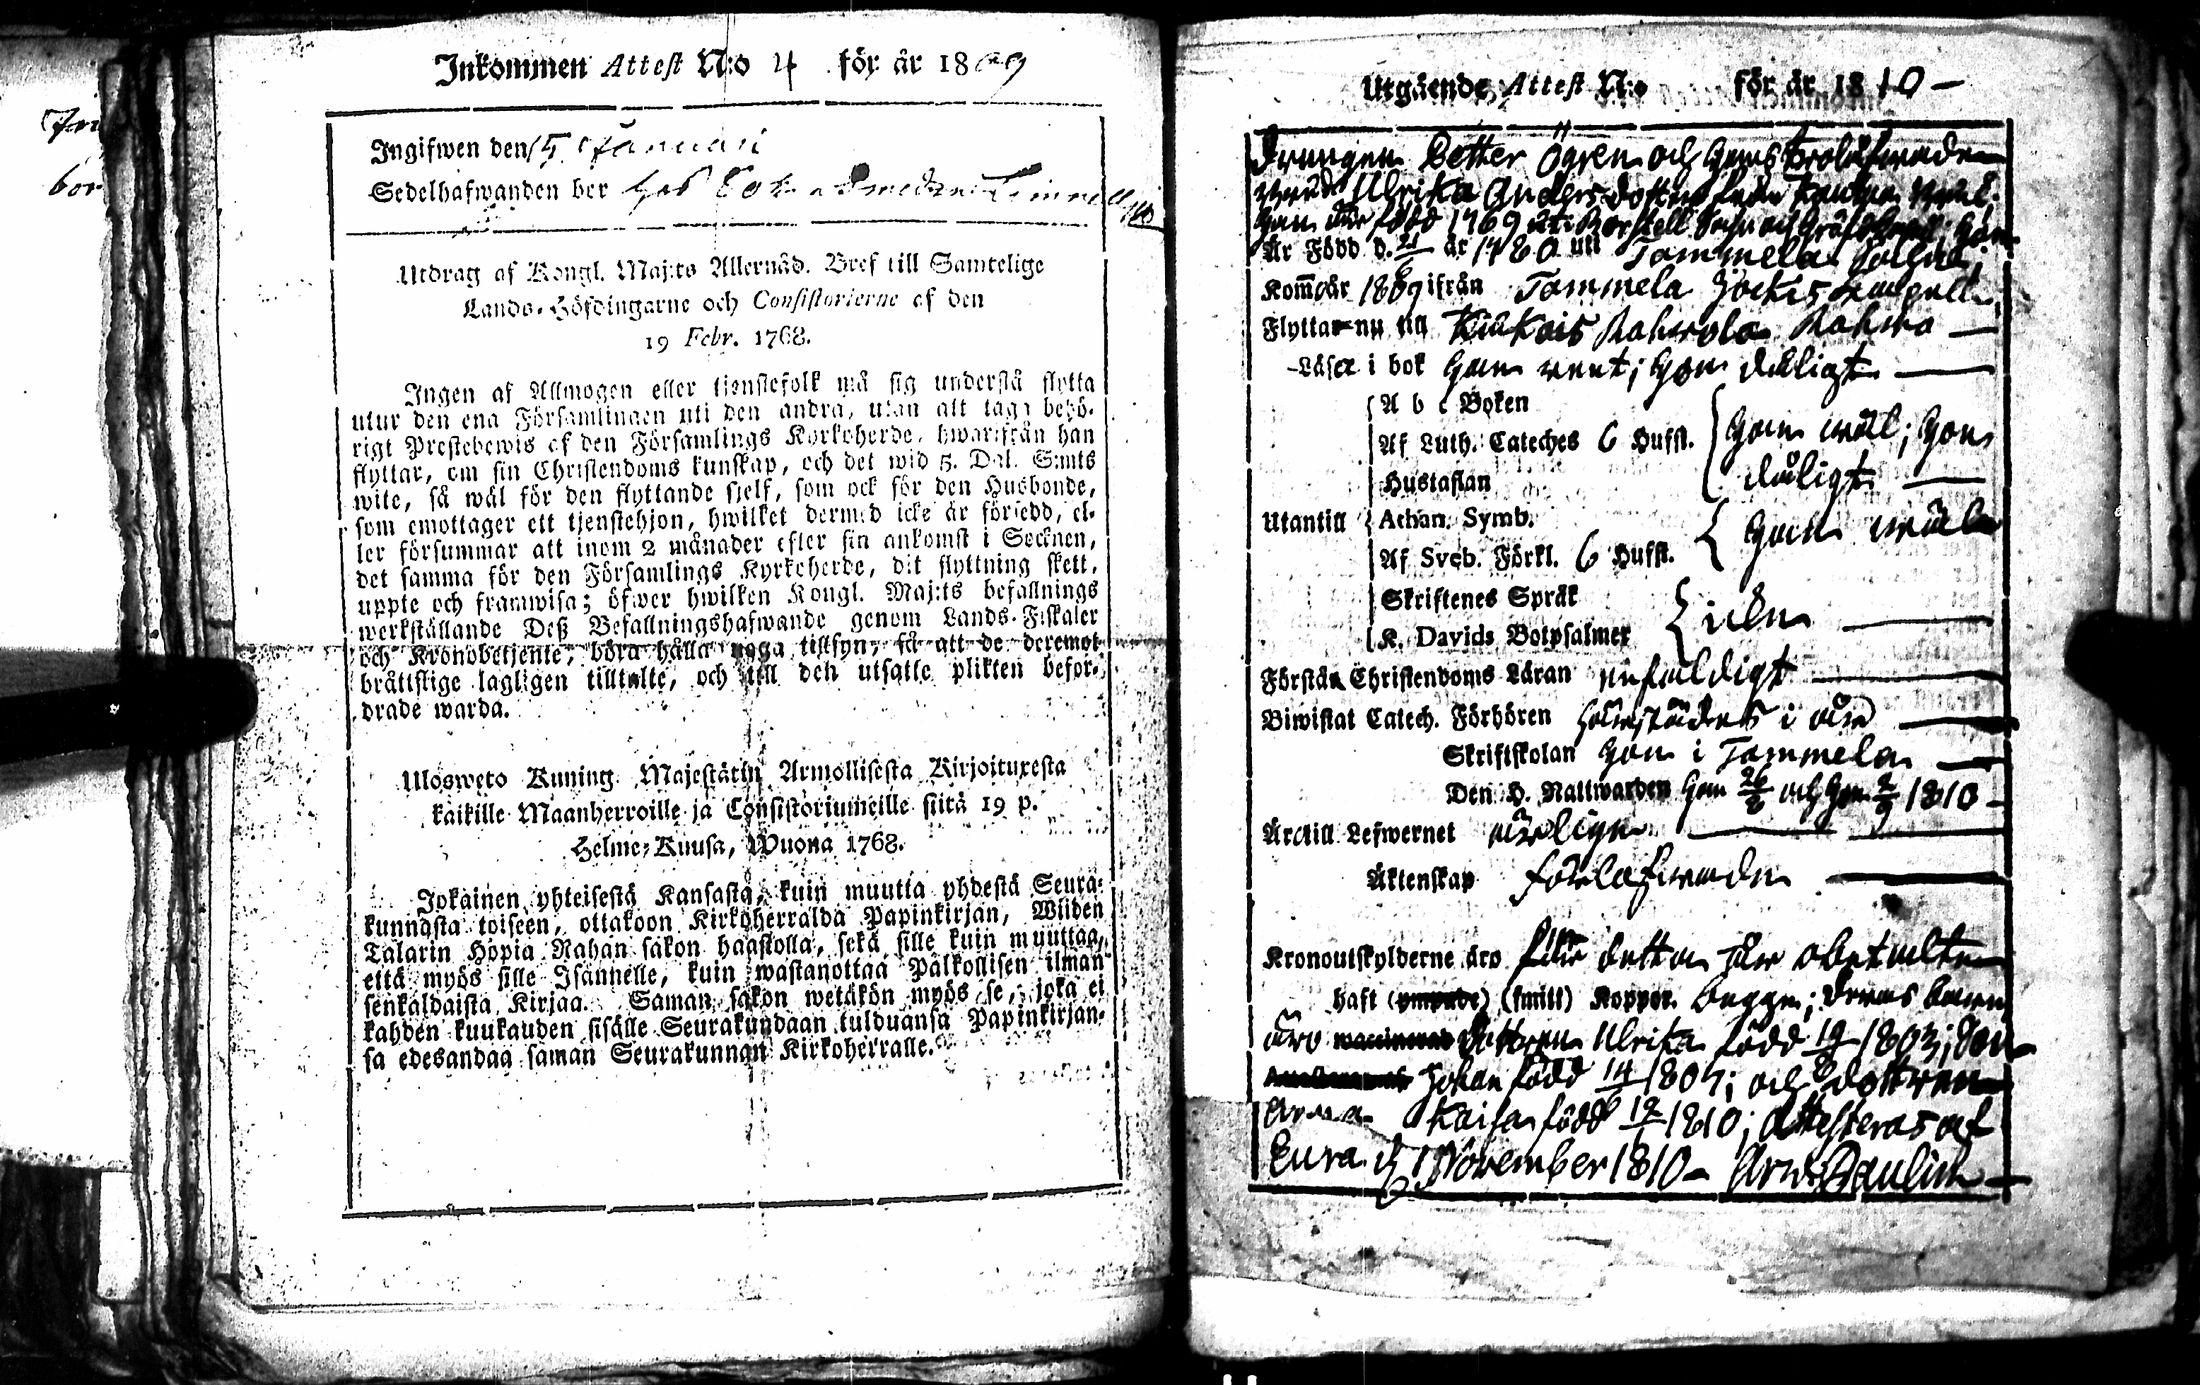 Inkommen Attest N:o 4 för år 1809
Ingifwen den 5 Januari
Sedelhafwanden ber hos
Utdrag af Kongl. Maj:ts Allernåd. Bref till Samtelige
Lands-Höfdingarne och Consistorierne af den
19 Febr. 1768.
Ingen af Allmogen eller tjenstefolk må sig understå flytta
utur den ena Församlingen uti den andra, utan att taga behö-
rigt Prestebewis af den Församlings Kyrkoherde, hwarifrån han
flyttar, om sin Christendoms kunskap, och det wid 5. Dal. S:mts
wite, så wäl för den flyttande sjelf, som ock för den Husbonde,
som emottager ett tjenstehjon, hwilket dermed icke är försedd, el-
ler försummar att inom 2 månader efter sin ankomst i Socknen,
det samma för den Församlings Kyrkoherde, dit flyttning skett,
uppte och framwisa; öfwer hwilken Kongl. Maj:ts befallnings
werkställande Deß Befallningshafwande genom Lands-Fiskaler
och Kronobetjente, böra hålla noga tillsyn, så att de deremot
bråttslige lagligen tilltalte, och till den utsatte plikten befor-
drade warda.
Ulosweto Kuning. Majestätin Armollisesta Kirjoituxesta
kaikille Maanherroille ja Consistoriumeille siitä 19 p.
Helme-Kuusa, Wuona 1768.
Jokainen yhteisestä Kansasta, kuin muutta yhdestä Seura-
kunnasta toiseen, ottakoon Kirkoherralda Papinkirjan, Wiiden
Talarin Hopia Rahan sakon haastolla, sekä sille kuin muuttaa,
että myös sille Isännelle, kuin wastanottaa Palkollisen ilman
senkaldaista Kirjaa. Saman sakon wetäkön myös se, joka ei
kahden kuukauden sisälle Seurakundaan tulduansa Papinkirjan-
sa edesandaa saman Seurakunnan Kirkoherralle.
Utgående Attest N:o för år 1810 —
Drängen Petter Ögren och hans trolofwade
Ulrika Andersdotter
född 1769
Är Född d. 21 år 1780 uti Tammela Sochn;
Kom år 1809 ifrån Tammela Jockis
Flyttar nu till Kiukais Rahwola Rahwo —
Läser i bok han rent; hon dåligt —
A b c Boken
Af Luth. Cateches 6 Hufst. han wäl; hon
Hustaflan dåligt —
Utantill Athan. Symb.
Af Sveb. Förkl. 6 Hufst. han wäl
Skriftenes Språk
K. Davids Botpsalmer
Förstår Christendoms Läran enfaldigt —
Biwistat Catech. Förhören härstädes i år —
Skriftskolan hon i Tammela —
Den H. Nattwarden han och hon 1810 —
Är till Lefwernet ärlige —
Äktenskap förlofwade —
Kronoutskylderne äro för detta år obetalte
haft (ympade) (smitt) Koppor. begge; deras barn
äro dottren Ulrika född 1803; Son
Johan född 1807; och dottren
Anna Kaisa född 1810; Attesteras af
Eura d. 1 November 1810 — Arw. Paulin —